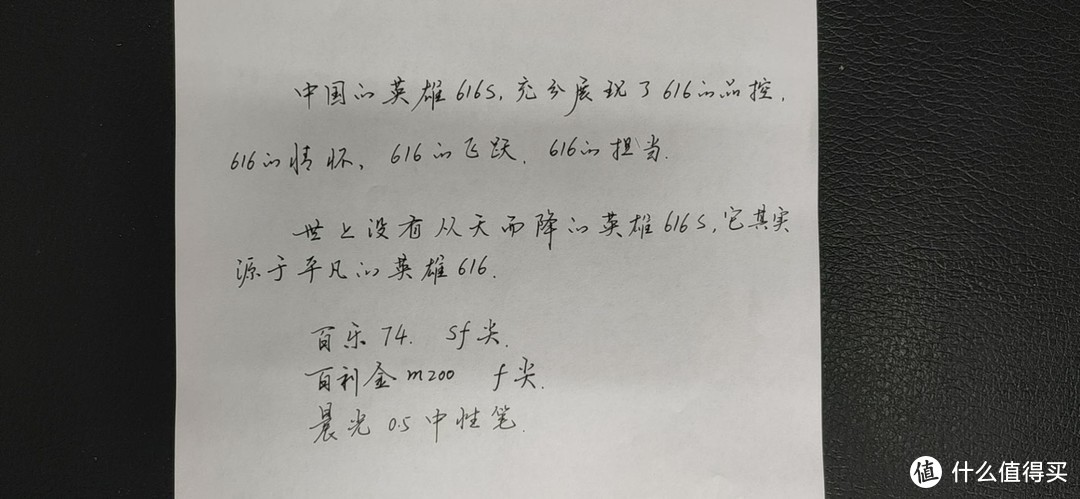 中国的英雄616S,充分展现了616的品控,
616的情怀、616的飞跃,616的担当.
世上没有从天而降的英雄616S,它其实
源于平凡的英雄616.
百乐74. Sf尖.
百利金m200 f尖.
晨光0.5中性笔.
值 什么值得买